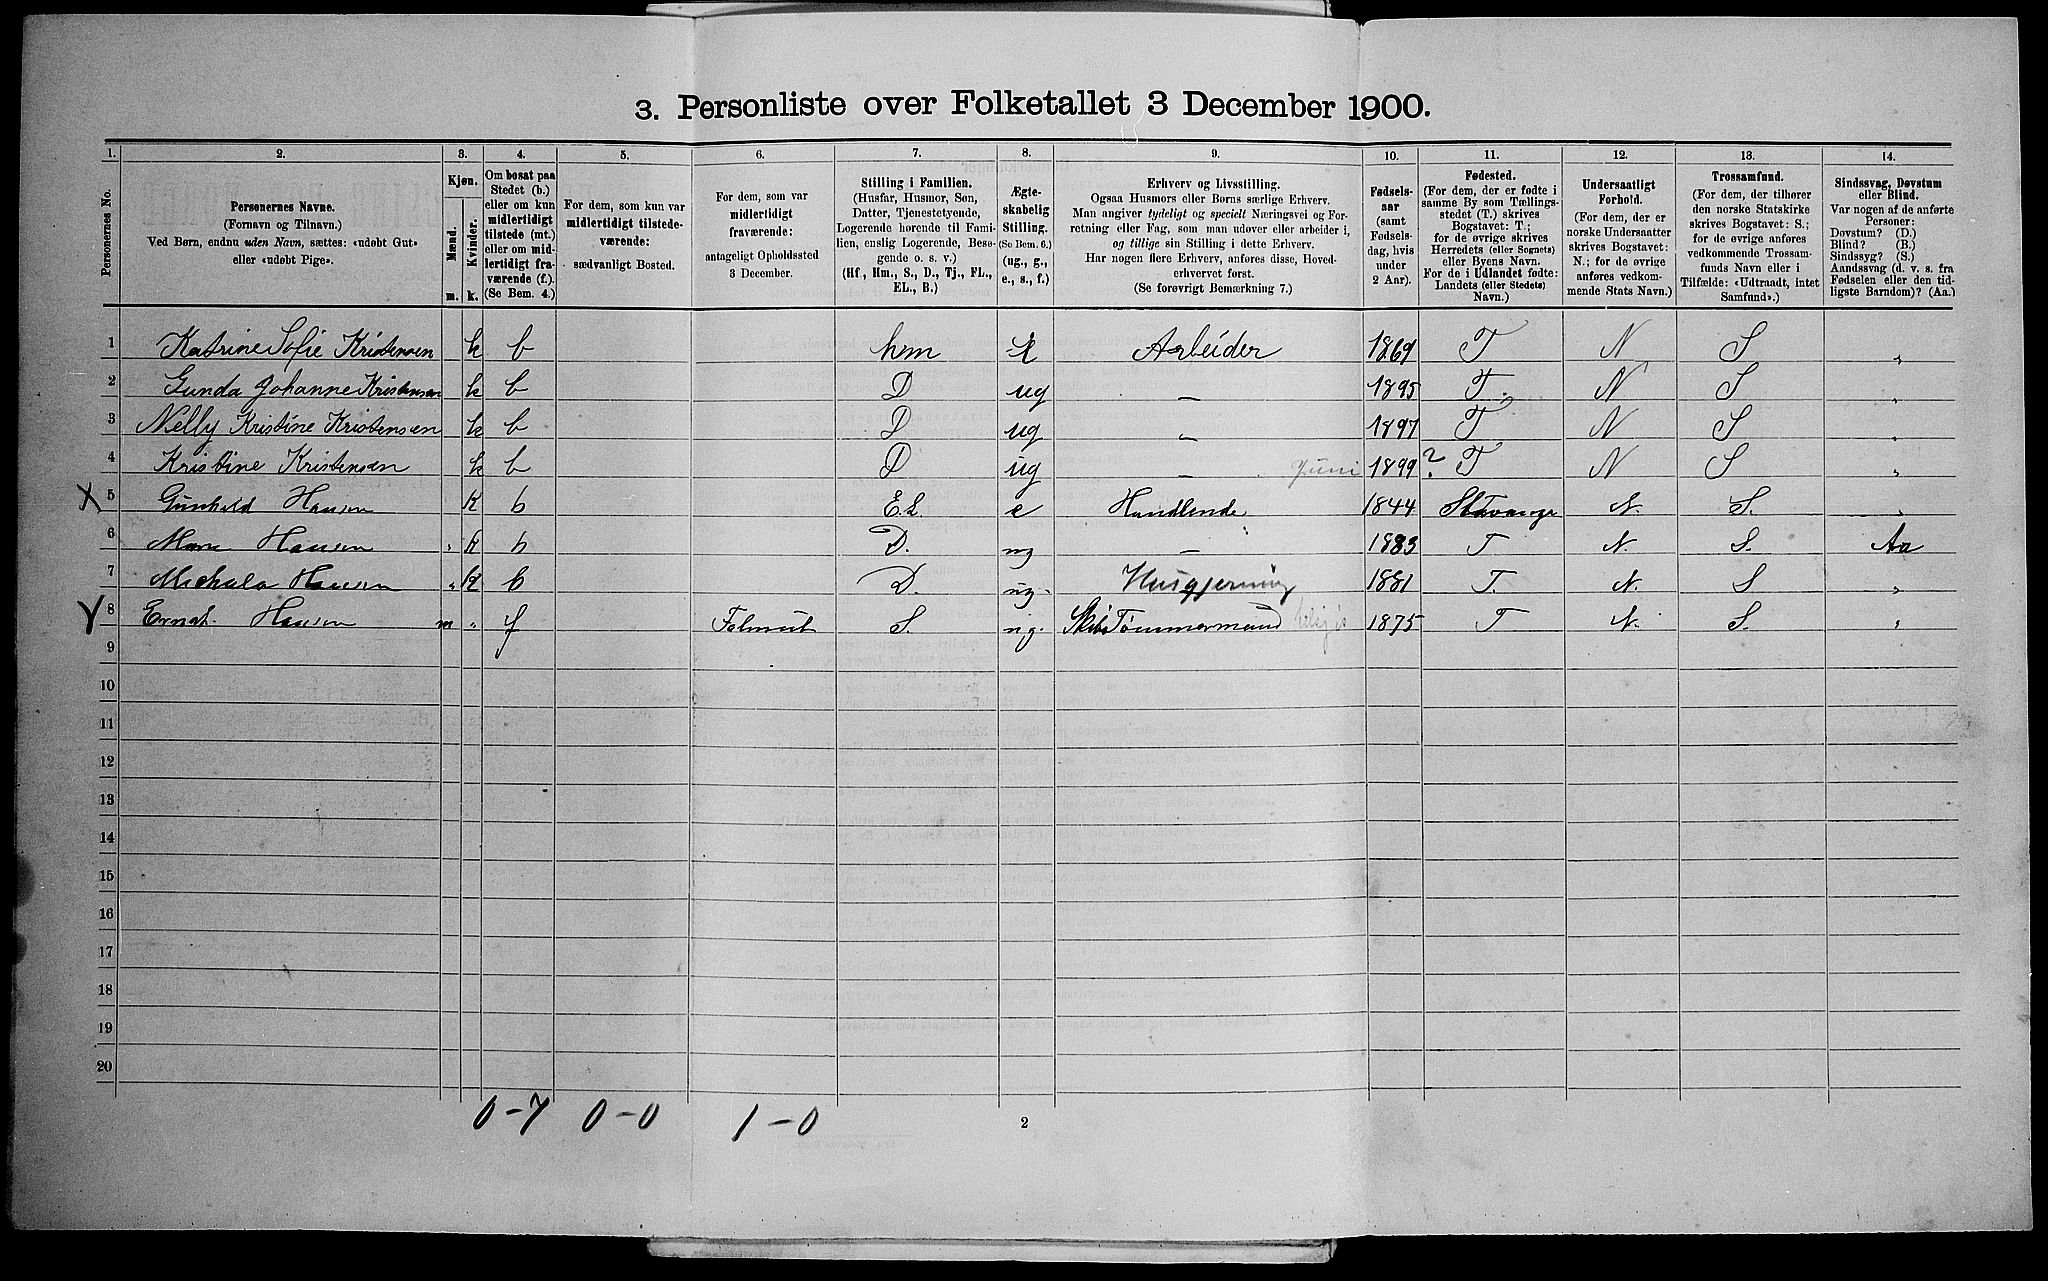 3. Personliste over Folketallet 3 December 1900.
1. 2. 3. 4. 5. 6. 7. 8. 9. 10. 11. 12. 13. 14.
Personernes No.
Personernes Navne.
(Fornavn og Tilnavn.)
Ved Børn, endnu uden Navn, sættes: «udøbt Gut»
eller «udøbt Pige».
Kjøn.
Mænd.
Kvinder.
m. k.
Om bosat paa
Stedet (b.)
eller om kun
midlertidigt
tilstede (mt.)
eller om mid-
lertidigt fra-
værende (f.)
(Se Bem. 4.)
For dem, som kun var
midlertidigt tilstede-
værende:
sædvanligt Bosted.
For dem, som var
midlertidigt
fraværende:
antageligt Opholdssted
3 December.
Stilling i Familien.
(Husfar, Husmor, Søn,
Datter, Tjenestetyende,
Logerende hørende til Fami-
lien, enslig Logerende, Besø-
gende o. s. v.)
(Hf., Hm., S., D., Tj., FL.,
EL., B.)
Ægte-
skabelig
Stilling.
(Se Bem. 6.)
(ug., g.,
e., s., f.)
Erhverv og Livsstilling.
Ogsaa Husmors eller Børns særlige Erhverv.
Man angiver tydeligt og specielt Næringsvei og For-
retning eller Fag, som man udøver eller arbeider i,
og tillige sin Stilling i dette Erhverv.
Har nogen flere Erhverv, anføres disse, Hoved-
erhvervet først.
(Se forøvrigt Bemærkning 7.)
Fødsels-
aar
(samt
Fødsels-
dag, hvis
under
2 Aar).
Fødested.
(For dem, der er fødte i
samme By som Tællings-
stedet (T.) skrives
Bogstavet: T.;
for de øvrige skrives
Herredets (eller Sognets)
eller Byens Navn.
For de i Udlandet fødte:
Landets (eller Stedets)
Navn.)
Undersaatligt
Forhold.
(For dem, der er
norske Undersaatter
skrives Bogstavet:
N.; for de øvrige
anføres vedkom-
mende Stats Navn.)
Trossamfund.
(For dem, der tilhører
den norske Statskirke
skrives Bogstavet: S.;
for de øvrige anføres
vedkommende Trossam-
funds Navn eller i
Tilfælde: «Udtraadt, intet
Samfund».)
Sindssvag, Døvstum
eller Blind.
Var nogen af de anførte
Personer:
Døvstum? (D.)
Blind? (B.)
Sindssyg? (S.)
Aandssvag (d. v. s. fra
Fødselen eller den tid-
ligste Barndom)? (Aa.)
1 Katrine Sofie Kristensen k b hm Arbeider 1869 T N S „
2 Gunda Johanne Kristensen k b D ug — 1895 T. N S „
3 Nelly Kristine Kristensen k b D ug — 1897 T N S „
4 Kristine Kristensen k b D ug — Juni 1899 ? T N S „
X 5 Gunhild Hansen k b E.L. e Handlende 1844 Stavanger N. S. „
6 Hansen „ k b D. ug — 1883 T N. S. Aa
7 Hansen „ k b D. ug. Husgjerning 1881 T. N. S „
8 Ernst. Hansen m „ f Falmut S. ug. Skibs Tømmermand 1875 T N. S. „
9
10
11
12
13
14
15
16
17
18
19
20
0-7 0-0 1-0
2